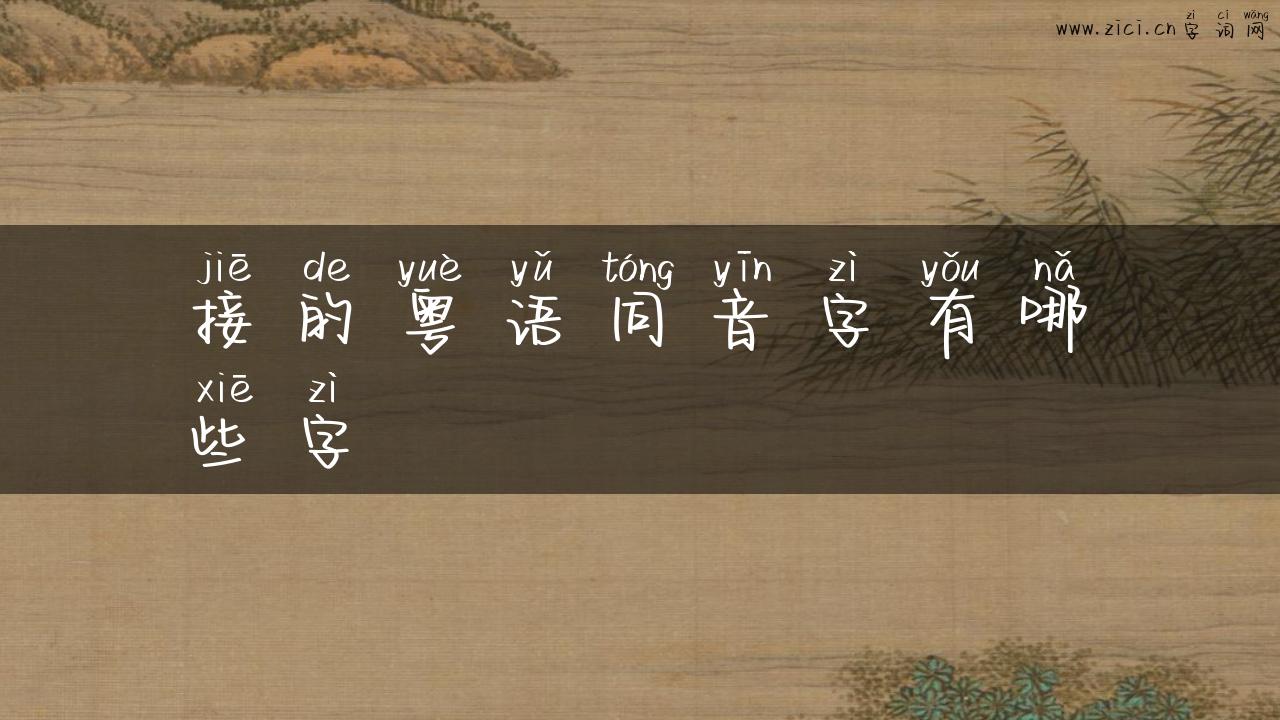 zì cí wǎng
www.zici.cn 字词网
jiē de yuè yǔ tóng yīn zì yǒu nǎ
接的粤语同音字有哪
xiē zì
些字